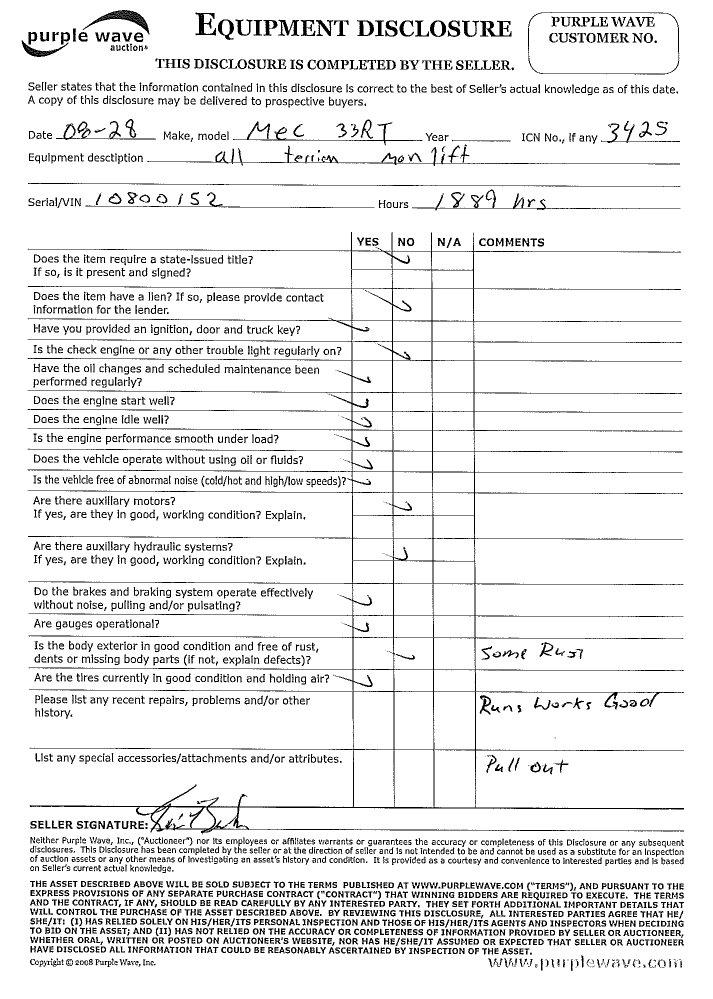 purple wave
auction
EQUIPMENT DISCLOSURE
PURPLE WAVE
CUSTOMER NO.
THIS DISCLOSURE IS COMPLETED BY THE SELLER.
Seller states that the information contained in this disclosure is correct to the best of Seller's actual knowledge as of this date.
A copy of this disclosure may be delivered to prospective buyers.
Date 08-28 Make, model MEC 33RT Year ICN No., if any 3425
Equipment desctiption all terrian man lift
Serial/VIN 10800152 Hours 1889 hrs
YES NO N/A COMMENTS
Does the item require a state-issued title?
If so, is it present and signed?
Does the item have a lien? If so, please provide contact
information for the lender.
Have you provided an ignition, door and truck key?
Is the check engine or any other trouble light regularly on?
Have the oil changes and scheduled maintenance been
performed regularly?
Does the engine start well?
Does the engine idle well?
Is the engine performance smooth under load?
Does the vehicle operate without using oil or fluids?
Is the vehicle free of abnormal noise (cold/hot and high/low speeds)?
Are there auxillary motors?
If yes, are they in good, working condition? Explain.
Are there auxillary hydraulic systems?
If yes, are they in good, working condition? Explain.
Do the brakes and braking system operate effectively
without noise, pulling and/or pulsating?
Are gauges operational?
Is the body exterior in good condition and free of rust,
dents or missing body parts (if not, explain defects)? Some Rust
Are the tires currently in good condition and holding air?
Please list any recent repairs, problems and/or other
history. Runs Works Good
List any special accessories/attachments and/or attributes. Pull out
SELLER SIGNATURE:
Neither Purple Wave, Inc., ("Auctioneer") nor its employees or affiliates warrants or guarantees the accuracy or completeness of this Disclosure or any subsequent
disclosures. This Disclosure has been completed by the seller or at the direction of seller and is not intended to be and cannot be used as a substitute for an inspection
of auction assets or any other means of investigating an asset's history and condition. It is provided as a courtesy and convenience to interested parties and is based
on Seller's current actual knowledge.
THE ASSET DESCRIBED ABOVE WILL BE SOLD SUBJECT TO THE TERMS PUBLISHED AT WWW.PURPLEWAVE.COM ("TERMS"), AND PURSUANT TO THE
EXPRESS PROVISIONS OF ANY SEPARATE PURCHASE CONTRACT ("CONTRACT") THAT WINNING BIDDERS ARE REQUIRED TO EXECUTE. THE TERMS
AND THE CONTRACT, IF ANY, SHOULD BE READ CAREFULLY BY ANY INTERESTED PARTY. THEY SET FORTH ADDITIONAL IMPORTANT DETAILS THAT
WILL CONTROL THE PURCHASE OF THE ASSET DESCRIBED ABOVE. BY REVIEWING THIS DISCLOSURE, ALL INTERESTED PARTIES AGREE THAT HE/
SHE/IT: (I) HAS RELIED SOLELY ON HIS/HER/ITS PERSONAL INSPECTION AND THOSE OF HIS/HER/ITS AGENTS AND INSPECTORS WHEN DECIDING
TO BID ON THE ASSET; AND (II) HAS NOT RELIED ON THE ACCURACY OR COMPLETENESS OF INFORMATION PROVIDED BY SELLER OR AUCTIONEER,
WHETHER ORAL, WRITTEN OR POSTED ON AUCTIONEER'S WEBSITE, NOR HAS HE/SHE/IT ASSUMED OR EXPECTED THAT SELLER OR AUCTIONEER
HAVE DISCLOSED ALL INFORMATION THAT COULD BE REASONABLY ASCERTAINED BY INSPECTION OF THE ASSET.
Copyright © 2008 Purple Wave, Inc. www.purplewave.com